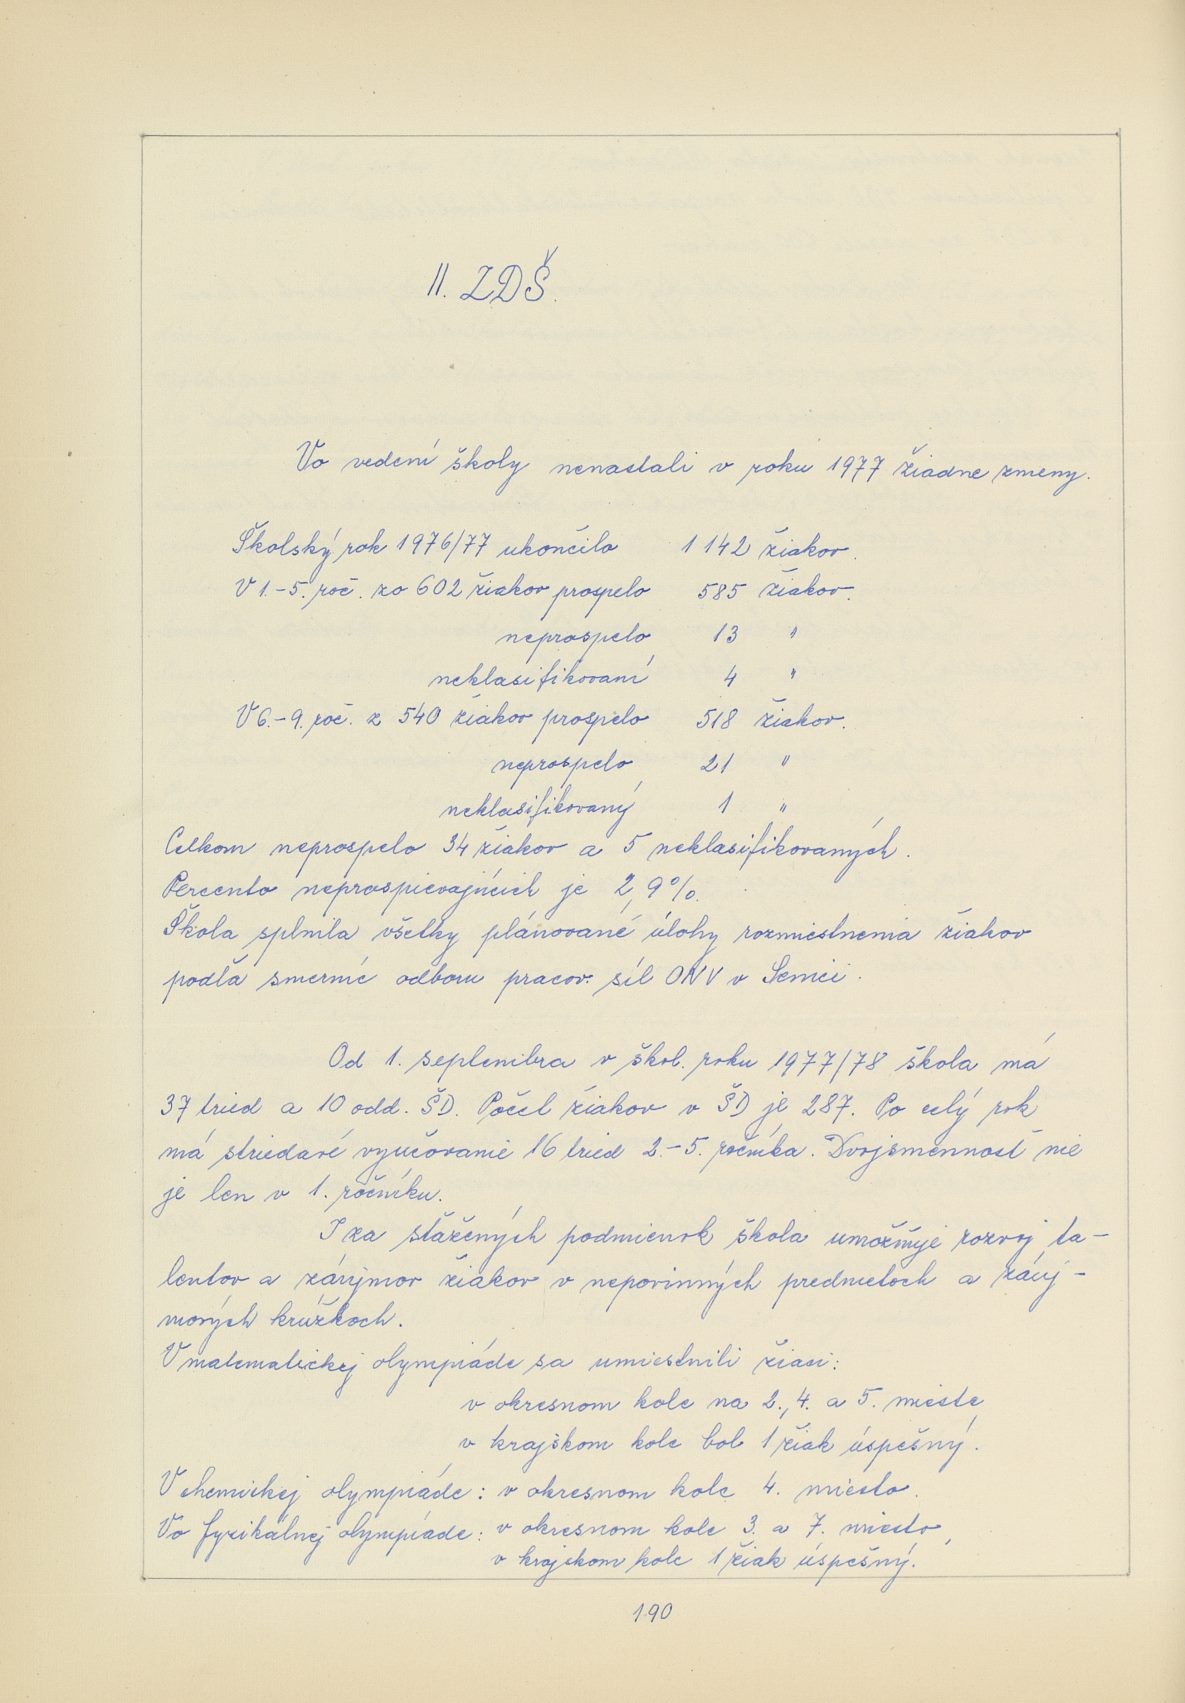 II. ZDŠ.
Vo vedení školy nenastali v roku 1977 žiadne zmeny.
Školský rok 1976/77 ukončilo 1 142 žiakov.
V 1.-5. roč. zo 602 žiakov prospelo 585 žiakov.
neprospelo 13 "
neklasifikovaní 4 "
V 6.-9. roč. z 540 žiakov prospelo 518 žiakov.
neprospelo 21 "
neklasifikovaný 1 "
Celkom neprospelo 34 žiakov a 5 neklasifikovaných.
Percento neprospievajúcich je 2,9%.
Škola splnila všetky plánované úlohy rozmiestnenia žiakov
podľa smerníc odboru pracov. síl ONV v Senici.
Od 1. septembra v škol. roku 1977/78 škola má
37 tried a 10 odd. ŠD. Počet žiakov v ŠD je 287. Po celý rok
má striedavé vyučovanie 16 tried 2.-5. ročníka. Dvojsmennosť nie
je len v 1. ročníku.
I za sťažených podmienok škola umožňuje rozvoj ta-
lentov a záujmov žiakov v nepovinných predmetoch a záuj-
mových krúžkoch.
V matematickej olympiáde sa umiestnili žiaci:
v okresnom kole na 2., 4. a 5. mieste
v krajskom kole bol 1 žiak úspešný.
V chemickej olympiáde: v okresnom kole 4. miesto.
Vo fyzikálnej olympiáde: v okresnom kole 3. a 7. miesto,
v krajskom kole 1 žiak úspešný.
190